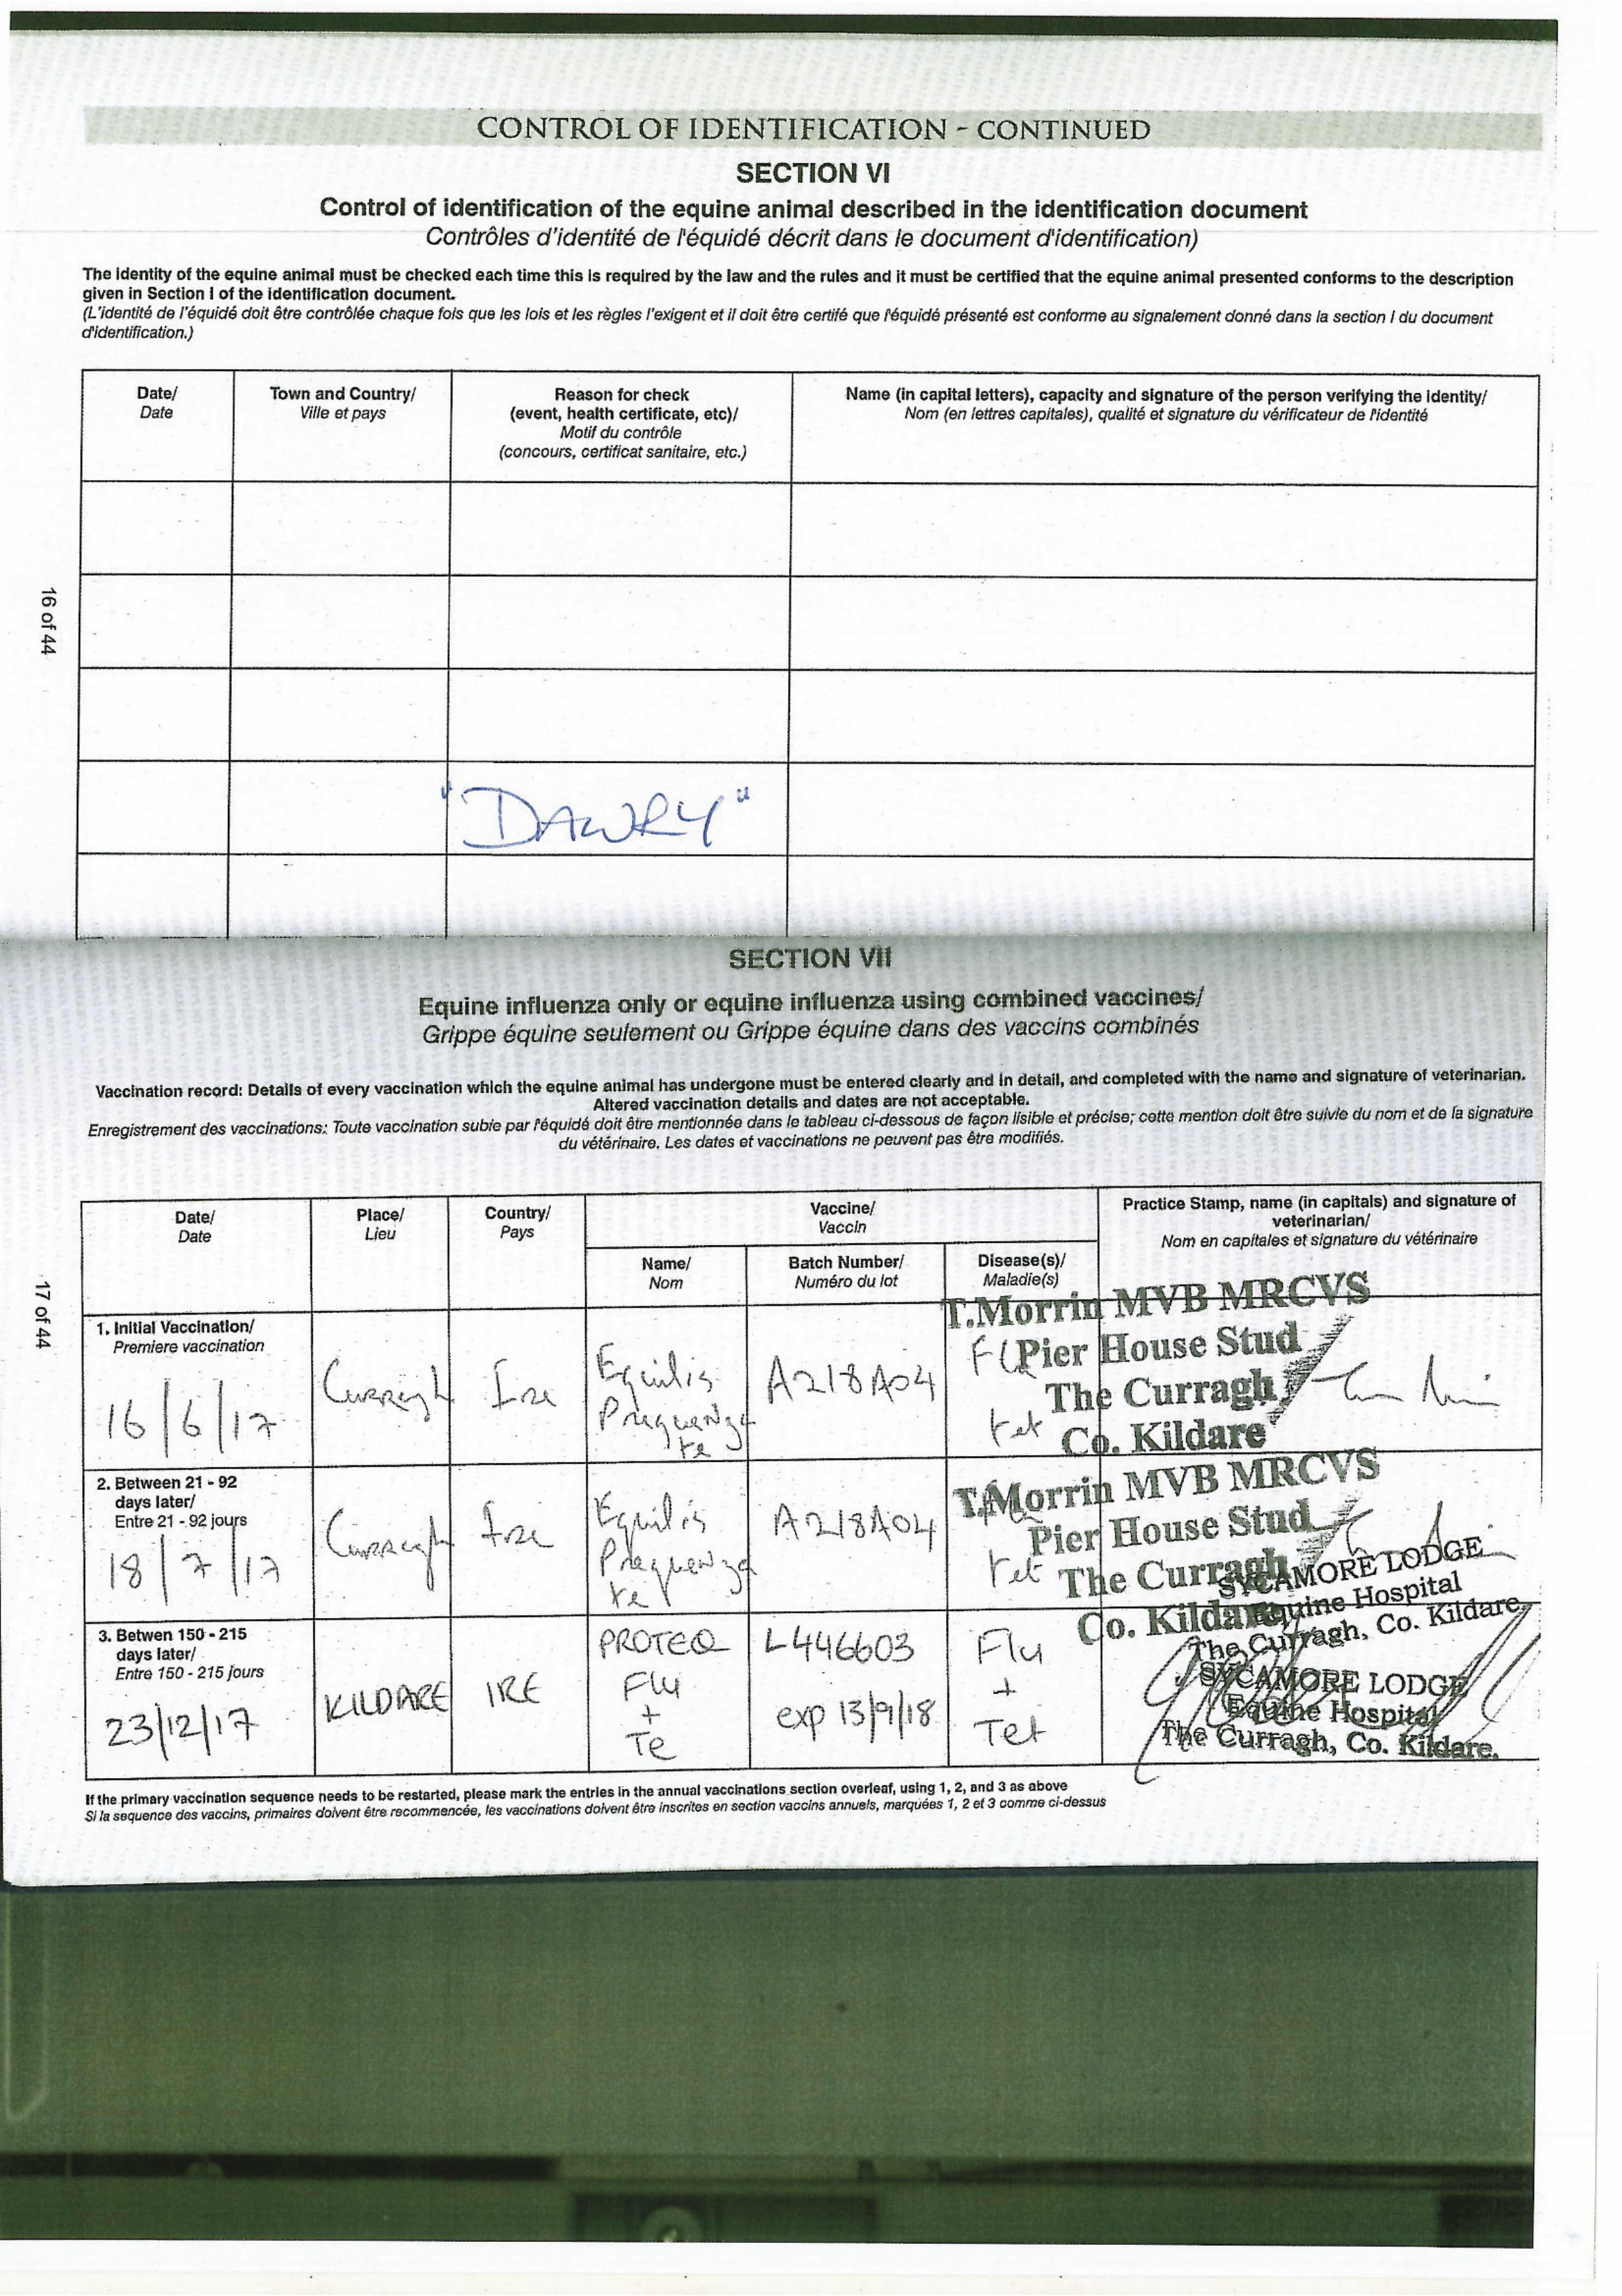 CONTROL OF IDENTIFICATION - CONTINUED
SECTION VI
Control of identification of the equine animal described in the identification document
Contrôles d'identité de l'équidé décrit dans le document d'identification)
The identity of the equine animal must be checked each time this is required by the law and the rules and it must be certified that the equine animal presented conforms to the description
given in Section I of the identification document.
(L'identité de l'équidé doit être contrôlée chaque fois que les lois et les règles l'exigent et il doit être certifé que l'équidé présenté est conforme au signalement donné dans la section I du document
d'identification.)
Date/
Date
Town and Country/
Ville et pays
Reason for check
(event, health certificate, etc)/
Motif du contrôle
(concours, certificat sanitaire, etc.)
Name (in capital letters), capacity and signature of the person verifying the identity/
Nom (en lettres capitales), qualité et signature du vérificateur de l'identité
16 of 44
"DAWRY"
SECTION VII
Equine influenza only or equine influenza using combined vaccines/
Grippe équine seulement ou Grippe équine dans des vaccins combinés
Vaccination record: Details of every vaccination which the equine animal has undergone must be entered clearly and in detail, and completed with the name and signature of veterinarian.
Altered vaccination details and dates are not acceptable.
Enregistrement des vaccinations: Toute vaccination subie par l'équidé doit être mentionnée dans le tableau ci-dessous de façon lisible et précise; cette mention doit être suivie du nom et de la signature
du vétérinaire. Les dates et vaccinations ne peuvent pas être modifiés.
Date/
Date
Place/
Lieu
Country/
Pays
Vaccine/
Vaccin
Name/
Nom
Batch Number/
Numéro du lot
Disease(s)/
Maladie(s)
Practice Stamp, name (in capitals) and signature of
veterinarian/
Nom en capitales et signature du vétérinaire
17 of 44
1. Initial Vaccination/
Premiere vaccination
16/6/17
Curragh
Ire
Equilis
Prequenza
te
A218A04
Flu
tet
T.Morrin MVB MRCVS
Pier House Stud
The Curragh
Co. Kildare
2. Between 21 - 92
days later/
Entre 21 - 92 jours
18/7/17
Curragh
Ire
Equilis
Prequenza
te
A218A04
tet
T.Morrin MVB MRCVS
Pier House Stud
The Curragh
Co. Kildare
SYCAMORE LODGE
Equine Hospital
The Curragh, Co. Kildare.
3. Betwen 150 - 215
days later/
Entre 150 - 215 jours
23/12/17
KILDARE
IRE
PROTEQ
Flu
+
Te
L446603
exp 13/9/18
Flu
+
Tet
SYCAMORE LODGE
Equine Hospital
The Curragh, Co. Kildare.
If the primary vaccination sequence needs to be restarted, please mark the entries in the annual vaccinations section overleaf, using 1, 2, and 3 as above
Si la sequence des vaccins, primaires doivent être recommencée, les vaccinations doivent être inscrites en section vaccins annuels, marquées 1, 2 et 3 comme ci-dessus